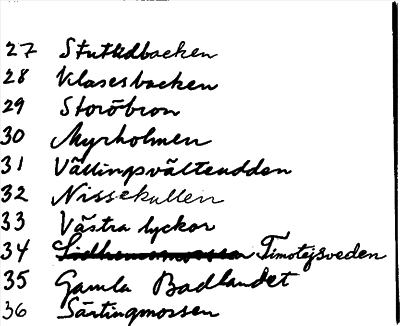 27 Stutudbacken
28 Klasesbacken
29 Storöbron
30 Myrholmen
31 Vällingsvältudden
32 Nissekullen
33 Västra lyckor
34 Timotejsveden
35 Gamla Badlandet
36 Särtingmossen